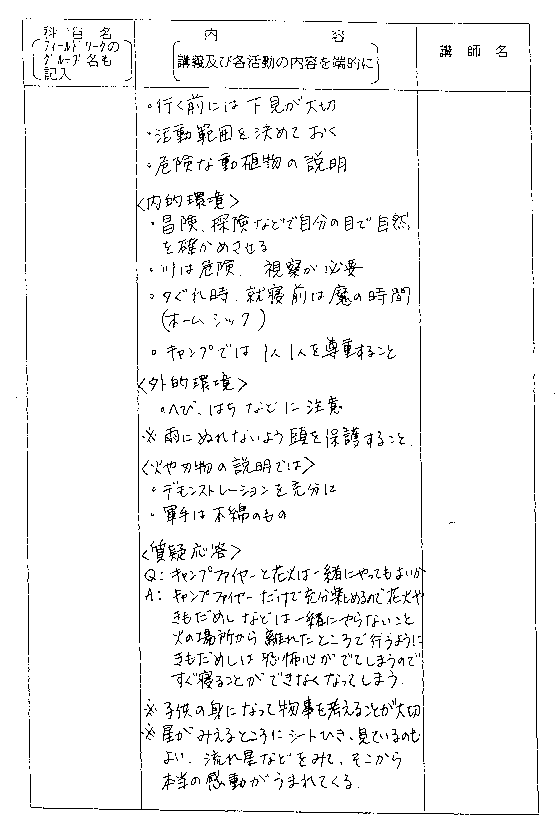 科目名
(フィールドワークの
グループ名も
記入)
内容
(講義及び各活動の内容を端的に)
講師名
・行く前には下見が大切
・活動範囲を決めておく
・危険な動植物の説明
<内的環境>
・冒険、探険などで自分の目で自然
を確かめさせる
・川は危険、視察が必要
・夕ぐれ時、就寝前は魔の時間
(ホームシック)
・キャンプでは1人1人を尊重すること
<外的環境>
・へび、はちなどに注意
※雨にぬれないよう頭を保護すること.
<火や刃物の説明では>
・デモンストレーションを充分に
・軍手は木綿のもの
<質疑応答>
Q:キャンプファイヤーと花火は一緒にやってもよいか
A:キャンプファイヤーだけで充分楽しめるので花火や
きもだめしなどは一緒にやらないこと
火の場所から離れたところで行うように
きもだめしは恐怖心がでてしまうので
すぐ寝ることができなくなってしまう.
※子供の身になって物事を考えることが大切
※星がみえるところにシートひき、見ているのも
よい.流れ星などをみて、そこから
本当の感動がうまれてくる.